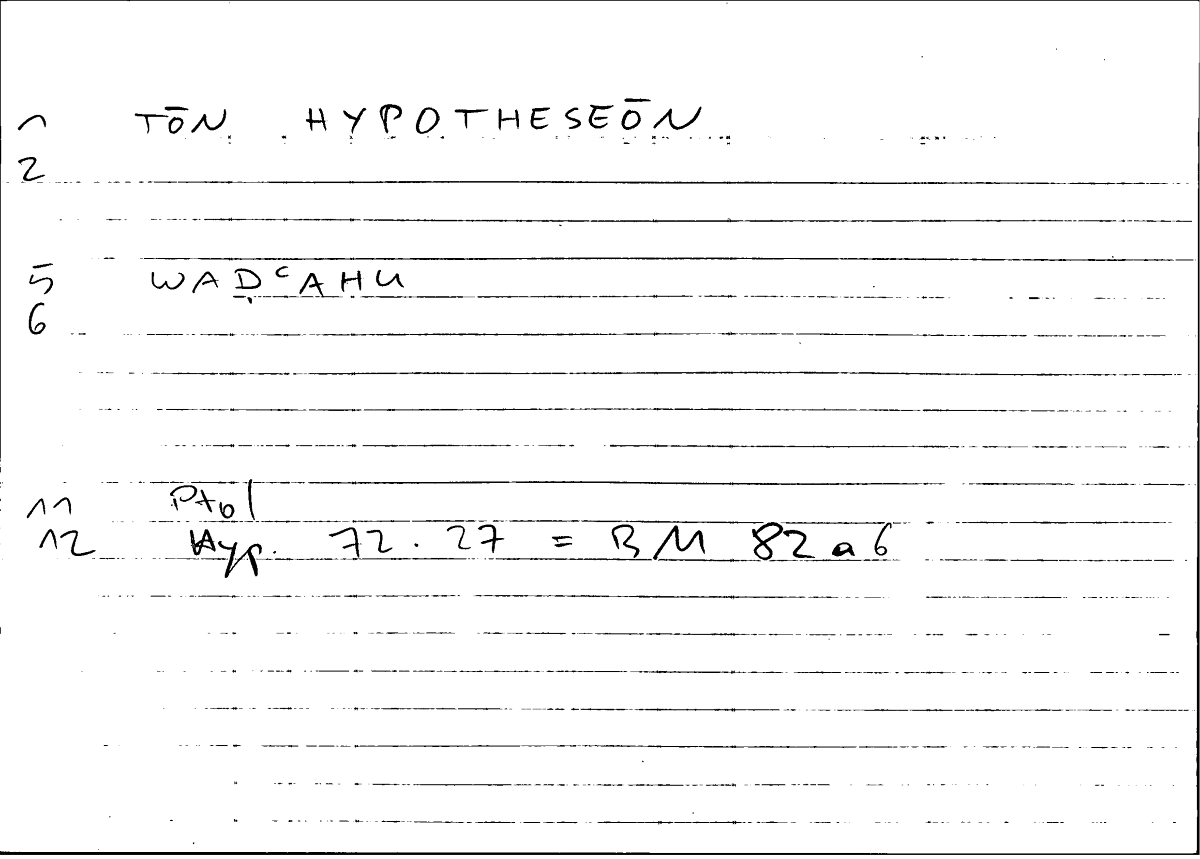 1 TŌN HYPOTHESEŌN
2
5 WAḌʿAHU
6
11 Ptol
12 Hyp. 72.27 = BM 82a6